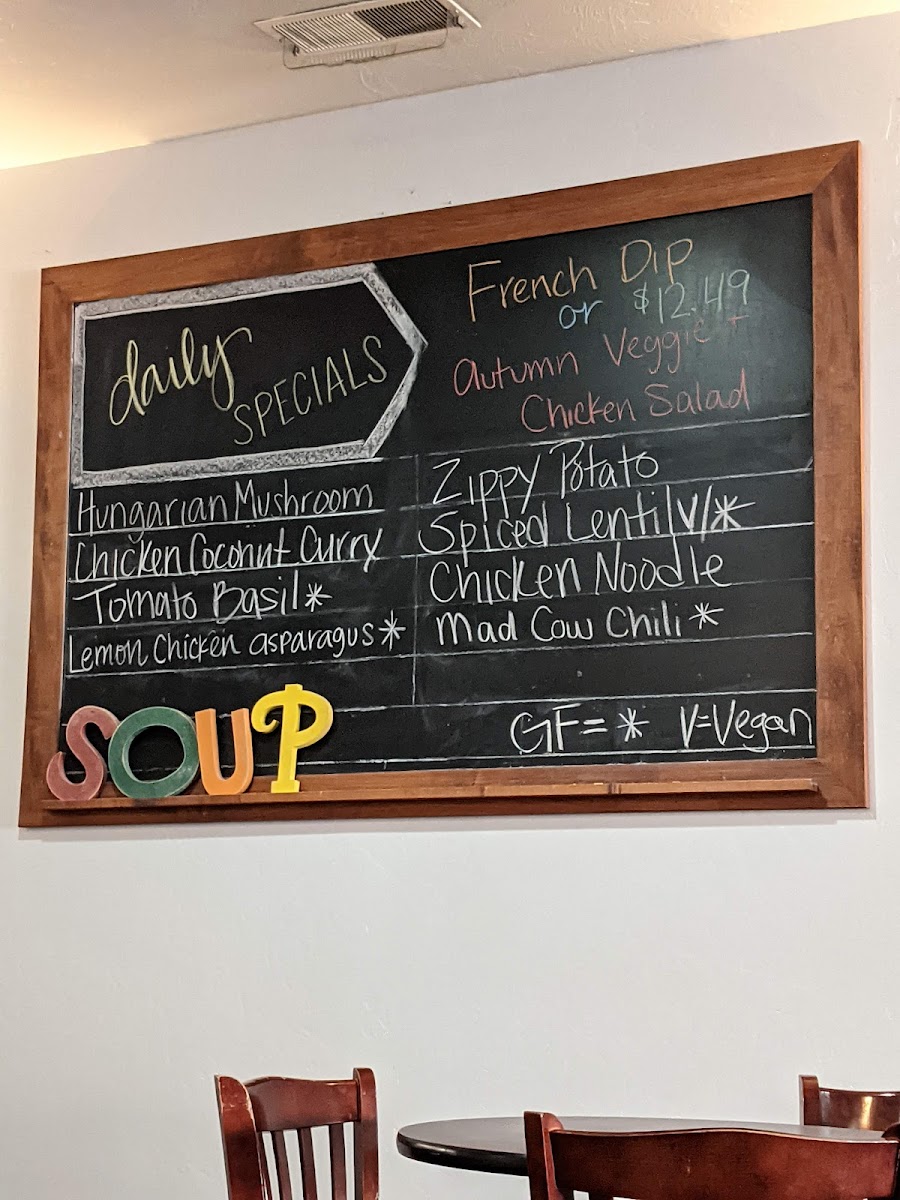 daily
SPECIALS
French Dip
or $12.49
Autumn Veggie +
Chicken Salad
Hungarian Mushroom
Chicken Coconut Curry
Tomato Basil *
Lemon Chicken asparagus *
Zippy Potato
Spiced Lentil V/*
Chicken Noodle
Mad Cow Chili *
SOUP
GF = * V=Vegan